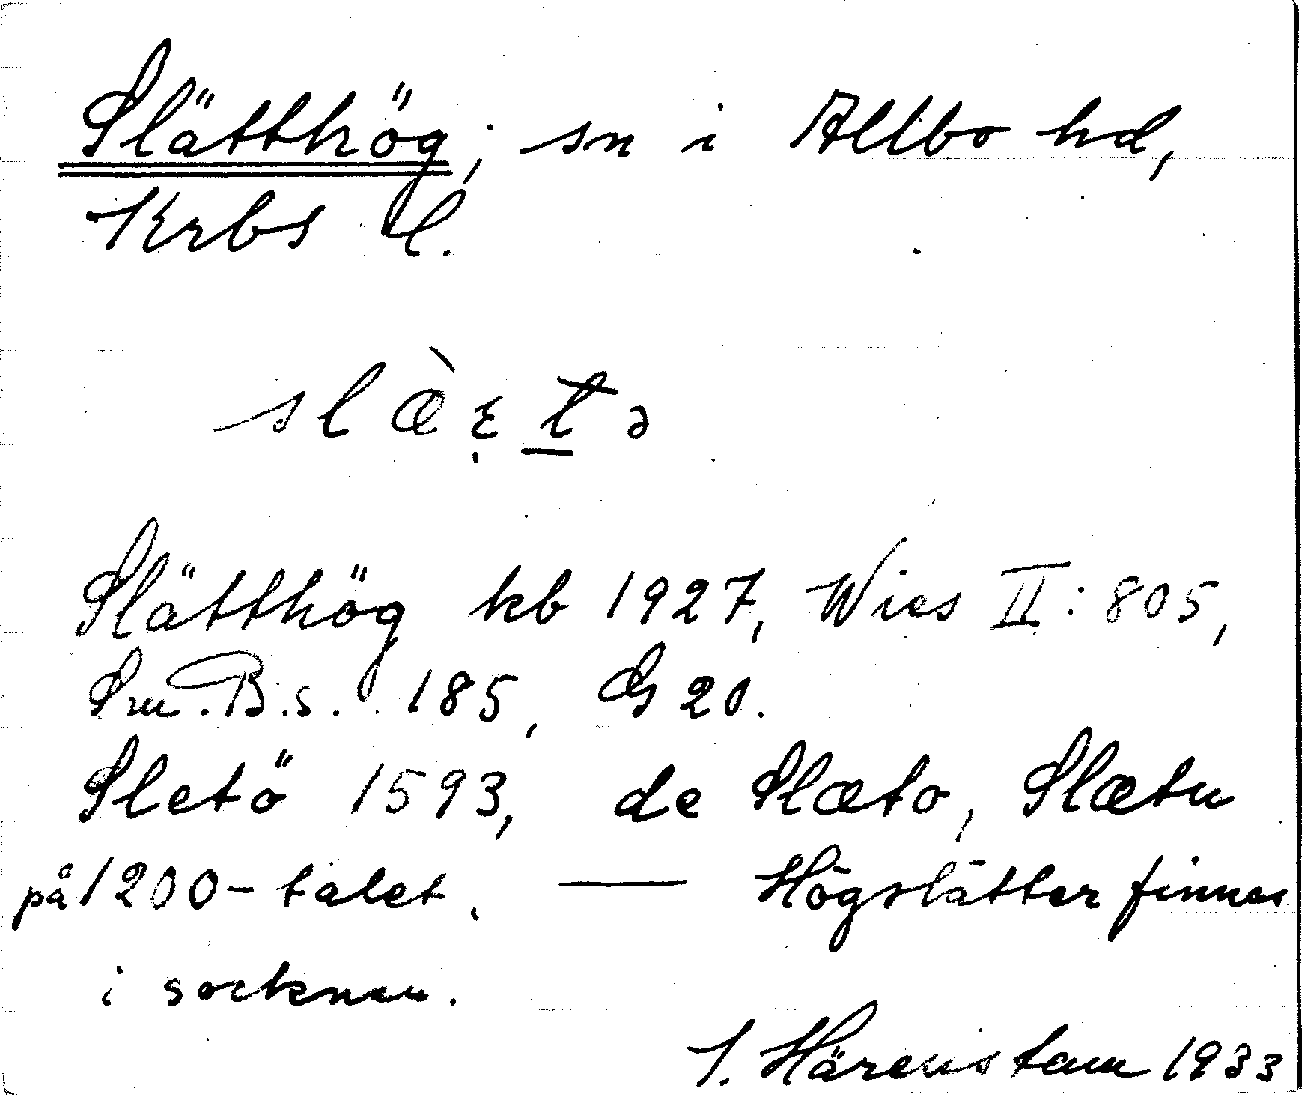 Slätthög, sn i Allbo hd,
Krbs l.
slæ̀ɛ̣t̲ə
Slätthög kb 1927, Wies II: 805,
Sm.B.s. 185, G 20.
Sletö 1593, de Slæto, Slætu
på 1200-talet. — Högslätter finnes
i socknen.
I. Härenstam 1933